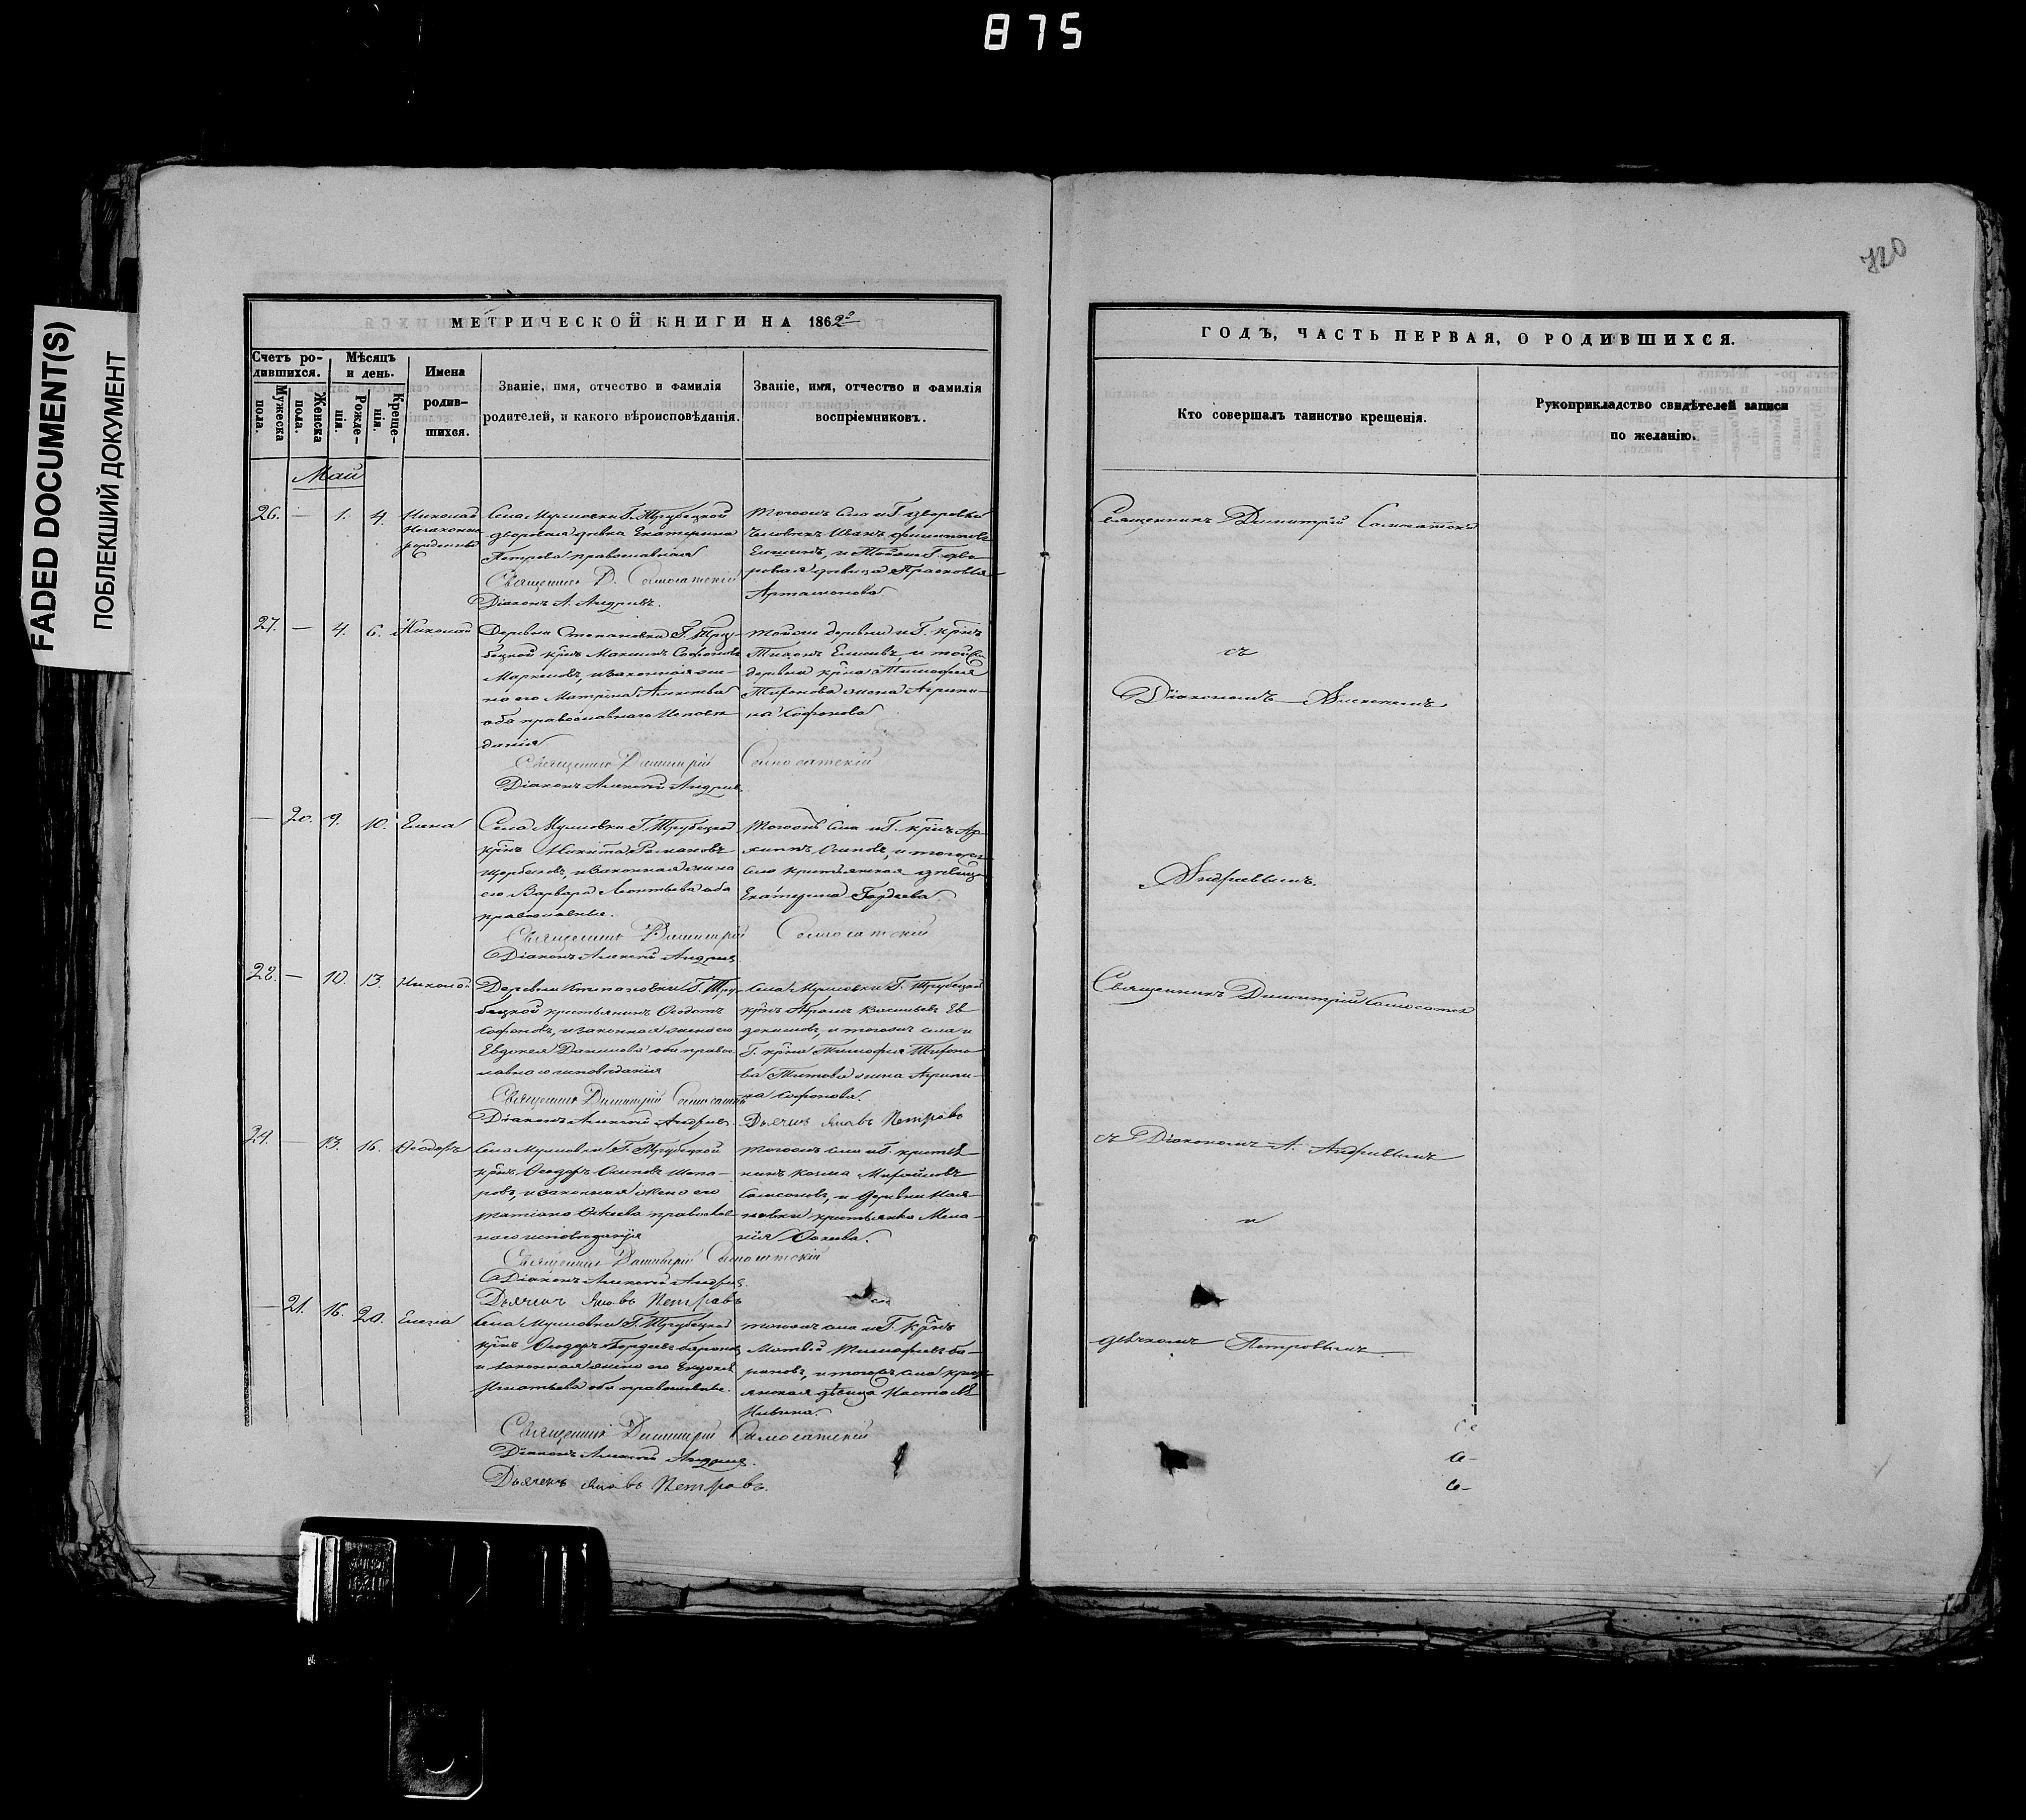 875
FADED DOCUMENT(S)
ПОБЛЕКШИЙ ДОКУМЕНТ
720
МЕТРИЧЕСКОЙ КНИГИ НА 1862
Счетъ ро-
дившихся.
Мужеска
пола.
Женска
пола.
Мѣсяцъ
и день.
Рожде-
нія.
Креще-
нія.
Имена
родив-
шихся.
Званіе, имя, отчество и фамилія
родителей, и какого вѣроисповѣданія.
Званіе, имя, отчество и фамилія
воспріемниковъ.
Май
26. — 1. 4. Николай
Незаконно
рожденный
Села Г. Трубецкой
дворовая дѣвка Екатерина
Петрова православная
Священникъ Д. Самосатскій
Діаконъ А. Андріевъ.
Тогожъ села и Г. дворовый
человѣкъ Иванъ
и Тойже Г. дво-
ровая дѣвица Прасковья
Артамонова
27. — 4. 6. Николай
Деревни Степановки Г. Тру-
бецкой крнъ Максимъ Софоновъ
и законная же-
на его Матрона Алексѣева
оба православнаго исповѣ-
данія
Священникъ Димитрій Самосатскій
Діаконъ Алексѣй Андріевъ.
Тойже деревни и Г. крнъ
и той же
деревни крна Тимофея
жена Агрипи-
на Софонова
— 20. 9. 10. Елена
Села Г. Трубецкой
крнъ Никита Романовъ
Щербаковъ, и законная жена
его Варвара Леонтьева оба
православные.
Священникъ Димитрій Самосатскій
Діаконъ Алексѣй Андріевъ
Тогожъ села и Г. крнъ Ар-
хиппъ Осиповъ, и тогожъ
села крестьянская дѣвица
Екатерина Гордеева.
28. — 10. 13. Николай
Деревни Степановки Г. Тру-
бецкой крестьянинъ Ѳеодотъ
Софоновъ, и законная жена его
Евдокея Данилова оба право-
славнаго исповѣданія
Священникъ Димитрій Самосатскій
Діаконъ Алексѣй Андріевъ.
Села Г. Трубецкой
крнъ Абрамъ Васильевъ Ев-
докимовъ, и тогожъ села и
Г. крна Тимофея
Титова жена Агрипи-
на Софонова.
Дьячекъ Яковъ Петровъ
29. — 13. 16. Ѳеодоръ
Села Г. Трубецкой
крнъ Ѳеодоръ Осиповъ
и законная жена его
Татіана православ-
наго исповѣданія
Священникъ Димитрій Самосатскій
Діаконъ Алексѣй Андріевъ.
Дьячекъ Яковъ Петровъ
Тогожъ села и Г. крестья-
нинъ Козма Михайловъ
Самсоновъ, и деревни
крестьянка Мела-
нія
— 21. 16. 20.
Села Г. Трубецкой
крнъ Ѳеодоръ Гордеевъ Барановъ
и законная жена его Евдокея
Игнатьева оба православные.
Священникъ Димитрій Самосатскій
Діаконъ Алексѣй Андріевъ.
Дьячекъ Яковъ Петровъ.
Тогожъ села и Г. крнъ
Матвѣй Тимофеевъ Ба-
рановъ, и тогожъ села кресть-
янская дѣвица Настасья
ГОДЪ, ЧАСТЬ ПЕРВАЯ, О РОДИВШИХСЯ.
Кто совершалъ таинство крещенія.
Рукоприкладство свидѣтелей записи
по желанію.
Священникъ Димитрій Самосатскій
съ
Діакономъ Алексѣемъ
Андріевымъ.
Священникъ Димитрій Самосатск
съ Діакономъ А. Андріевымъ
и
дьячкомъ Петровымъ